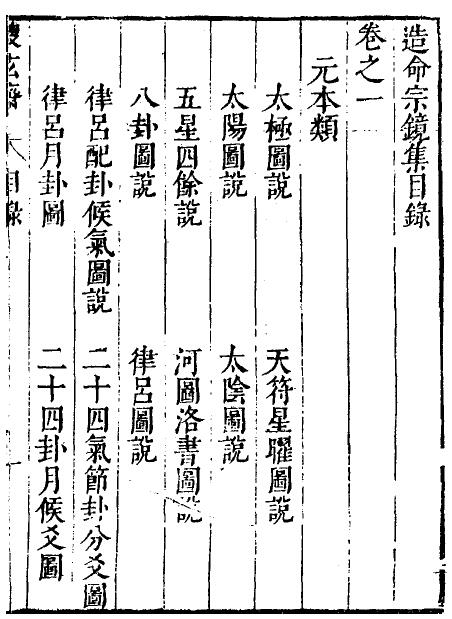 造命宗鏡集目錄
卷之一
元本類
太極圖說　天符星曜圖說
太陽圖說　太陰圖說
五星四餘說　河圖洛書圖說
八卦圖說　律呂圖說
律呂配卦候氣圖說　二十四氣節卦分爻圖
律呂月卦圖　二十四卦月候爻圖
目錄